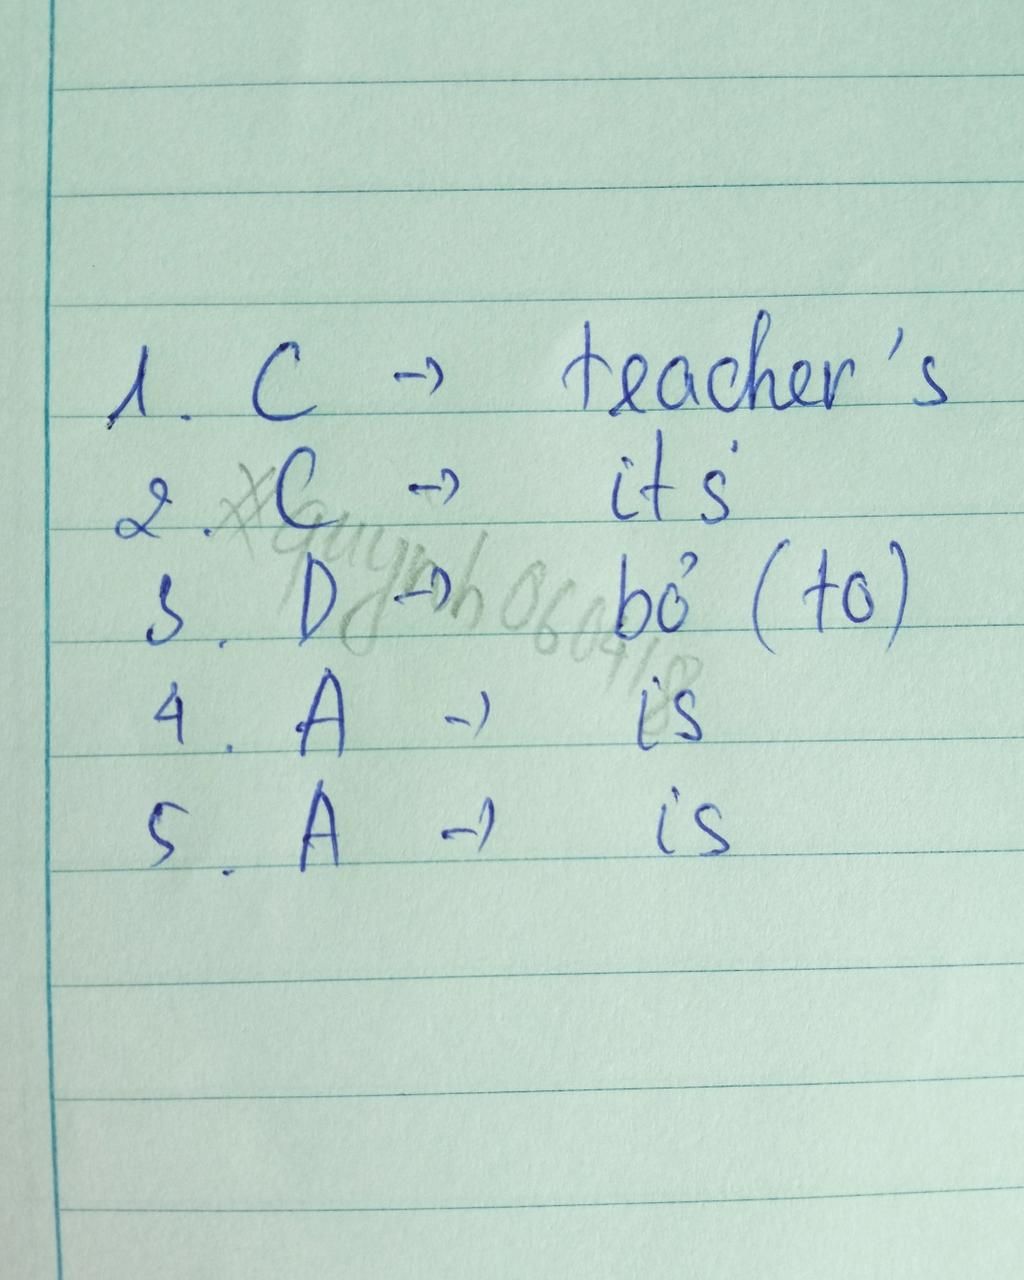 1. C → teacher's
2. C → its
3. D → bỏ (to)
4. A → is
5. A → is
xquynh060418